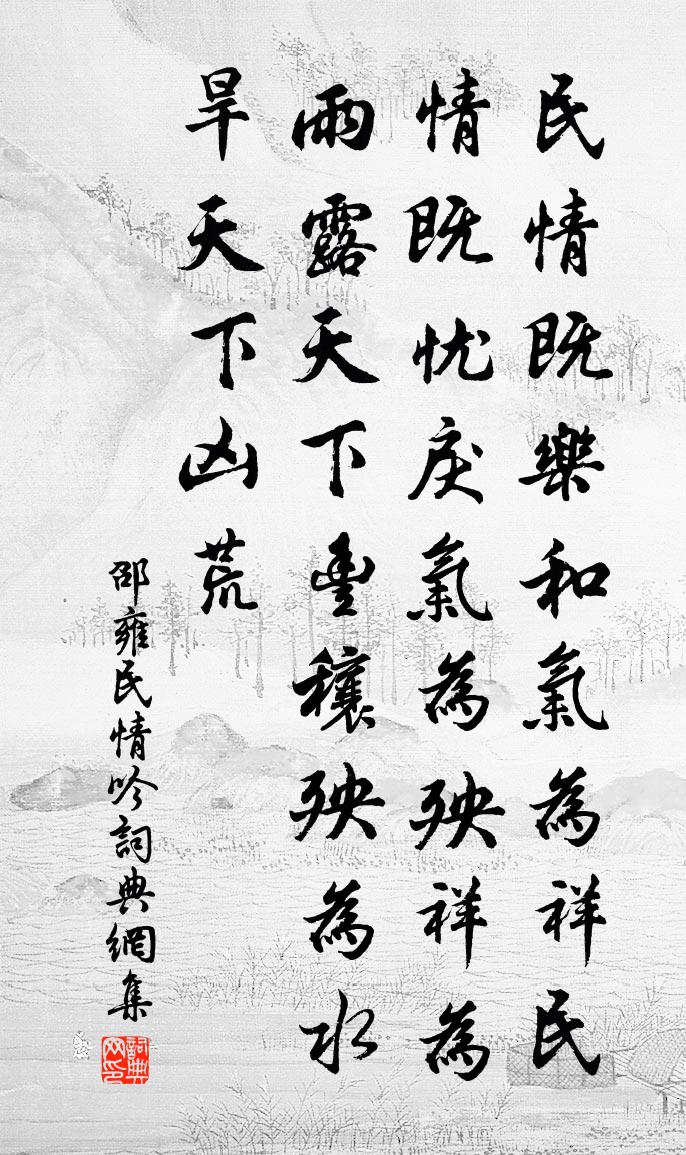 民情既樂和氣為祥民
情既忧戾氣為殃祥為
雨露天下豊穰殃為水
旱天下凶荒
邵雍民情吟詞典網集
詞典网印